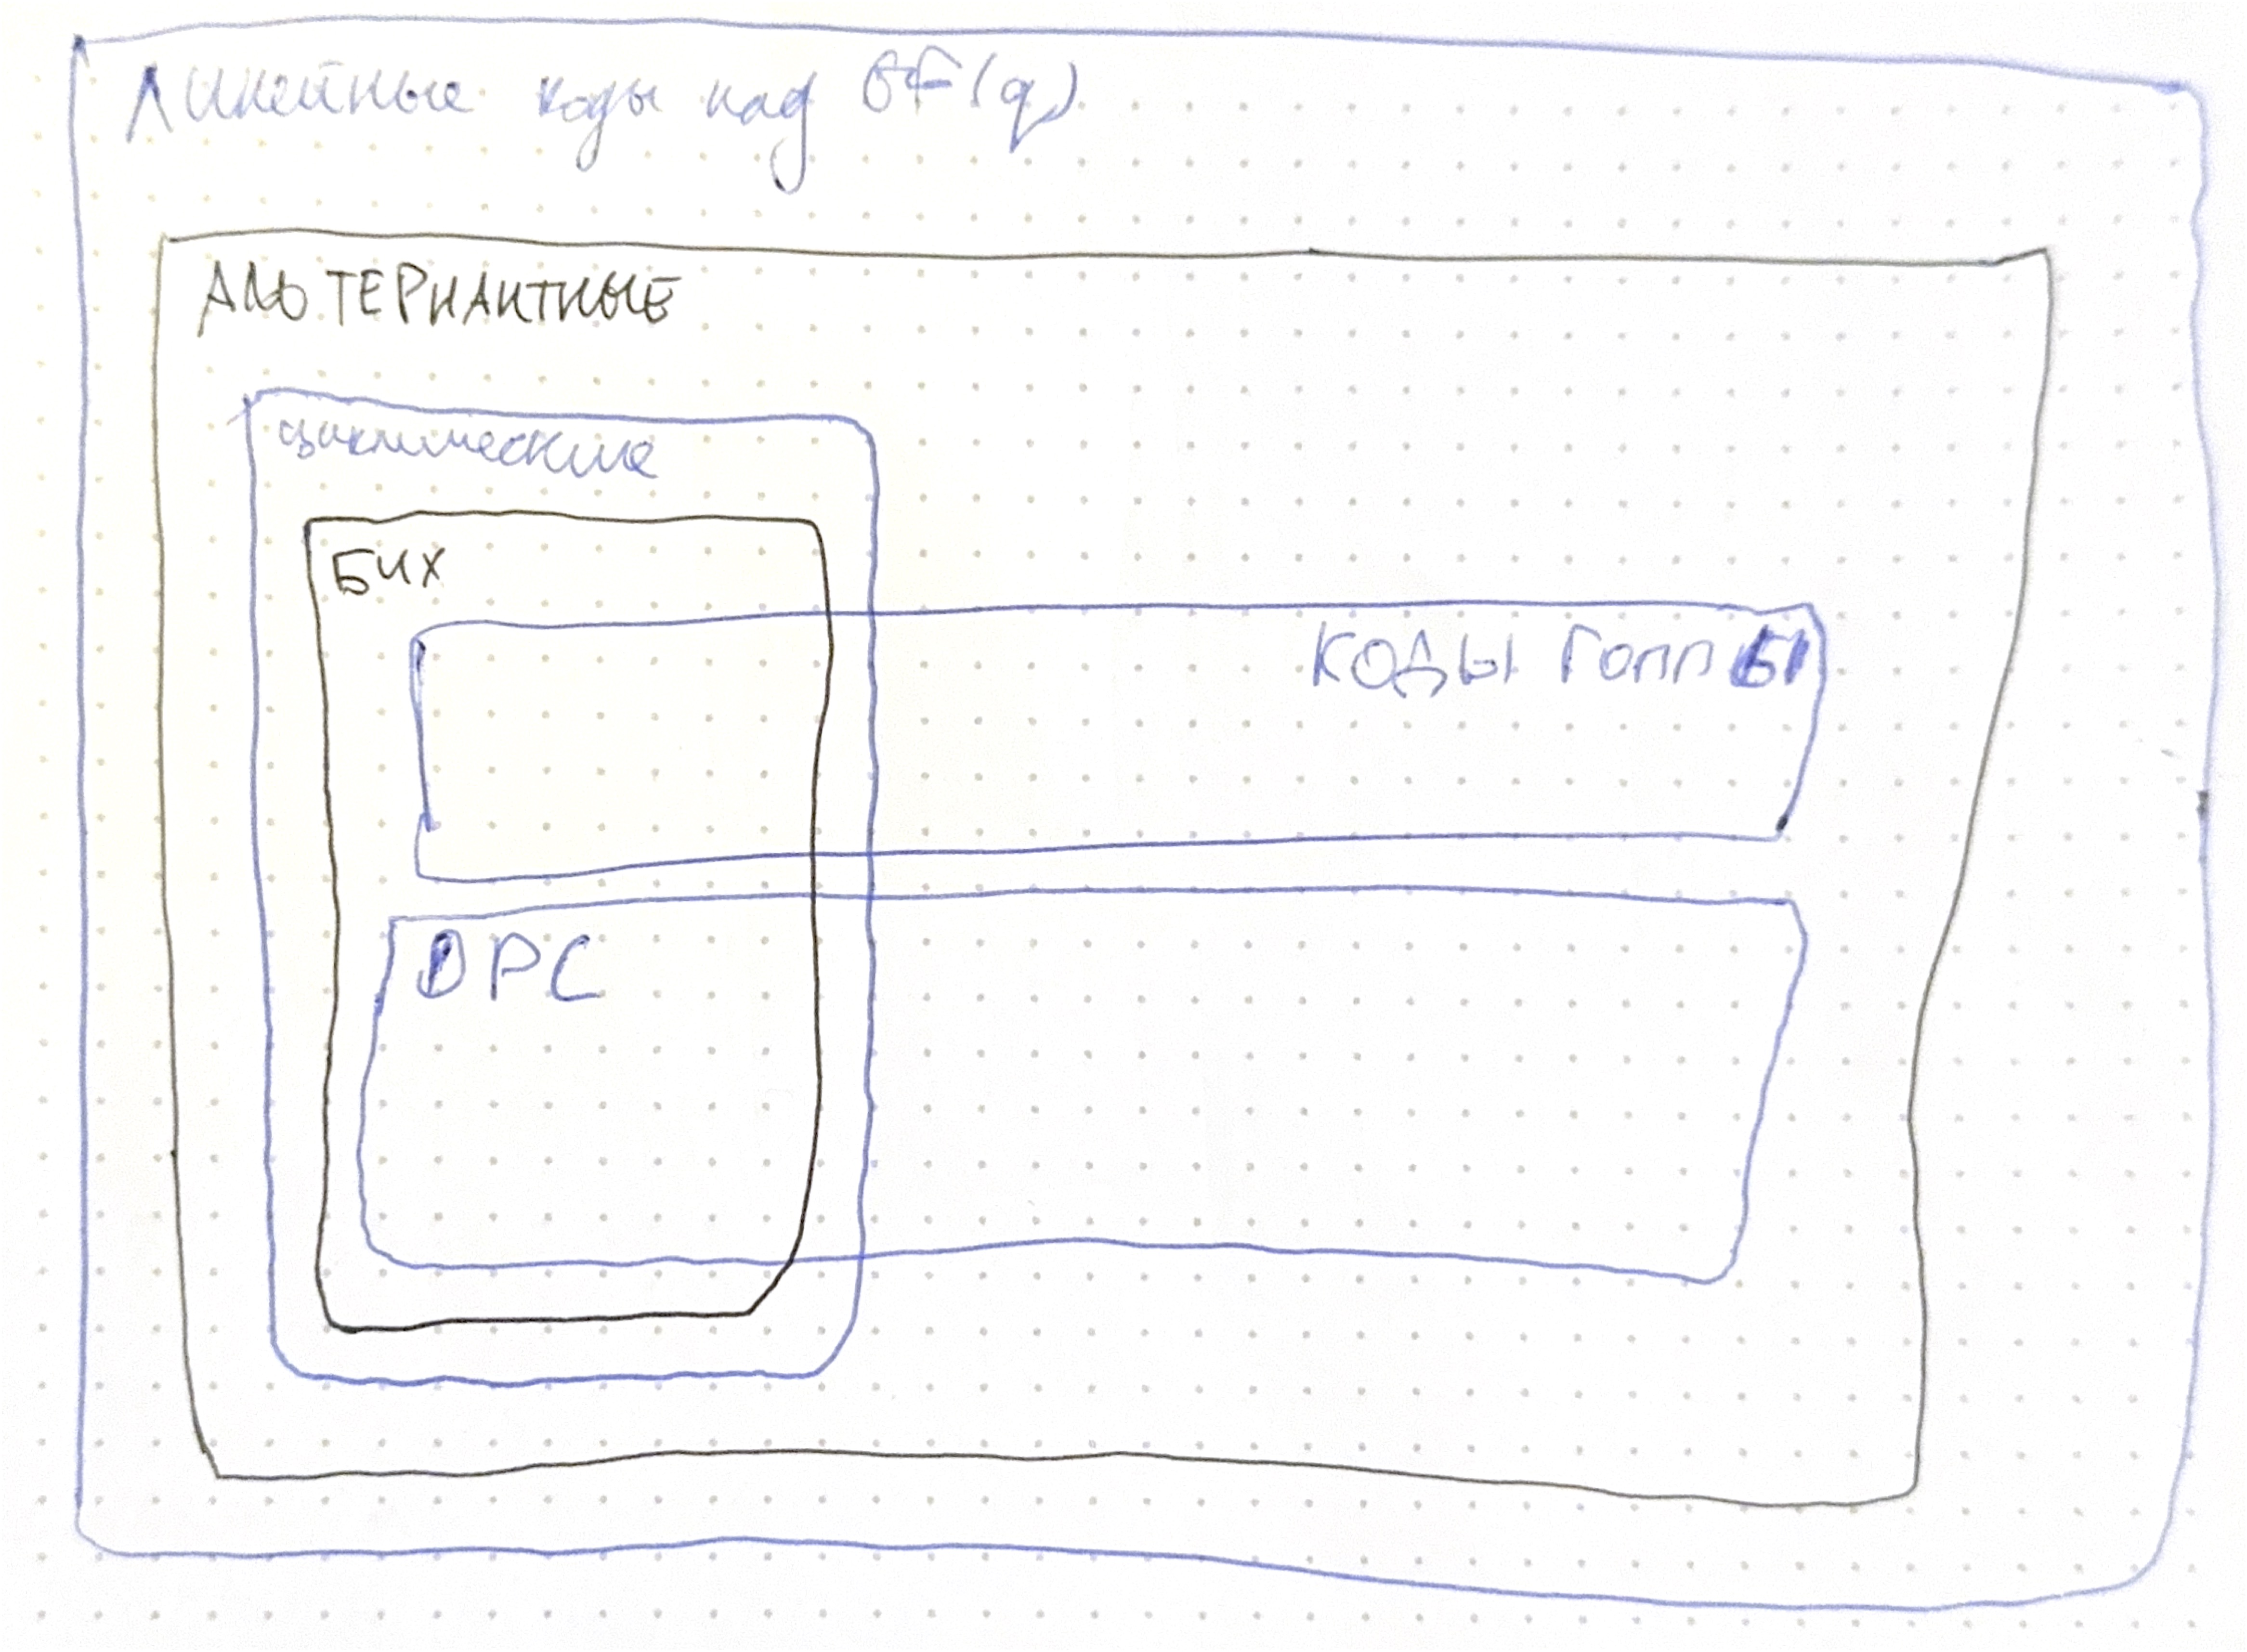 Линейные коды над GF(q)
АЛЬТЕРНАНТНЫЕ
циклические
БЧХ
КОДЫ ГОППЫ
ОРС